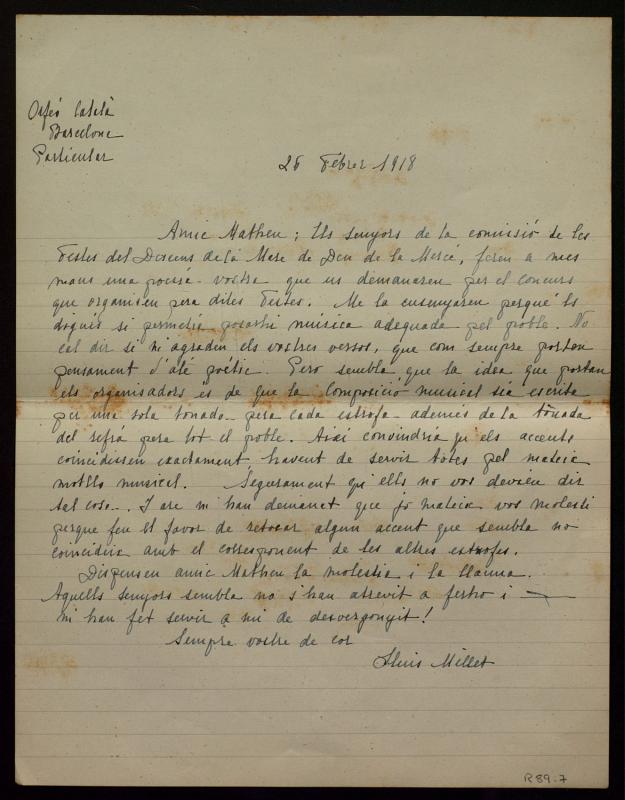 Orfeó Català
Barcelona
Particular
26 Febrer 1918
Amic Matheu: Els senyors de la comissió de les
Festes del Descens de la Mare de Deu de la Mercé, feren a mes
mans una poesía vostra que us demanaren per el concurs
que organisen pera dites Festes. Me la ensenyaren perqué 'ls
digués si permetía posarhi música adequada pel poble. No
cal dir si m'agraden els vostres versos, que com sempre portan
pensament d'alé poétic. Pero sembla que la idea que portan
els organisadors es de que la composició musical sia escrita
per una sola tonada pera cada estrofa ademés de la tonada
del refrá pera tot el poble. Aixi convindría qu'els accents
coincidissen exactament havent de servir totes pel mateix
motllo musical. Segurament qu'ells no vos devien dir
tal cosa. I are m'han demanat que jo mateix vos molesti
perque feu el favor de retocar algun accent que sembla no
coincidir amb el corresponent de les altres estrofes.
Dispenseu amic Matheu la molestia i la llauna.
Aquells senyors sembla no s'han atrevit a fertho i
m'han fet servir a mi de desvergonyit!
Sempre vostre de cor
Lluis Millet
R 89.7